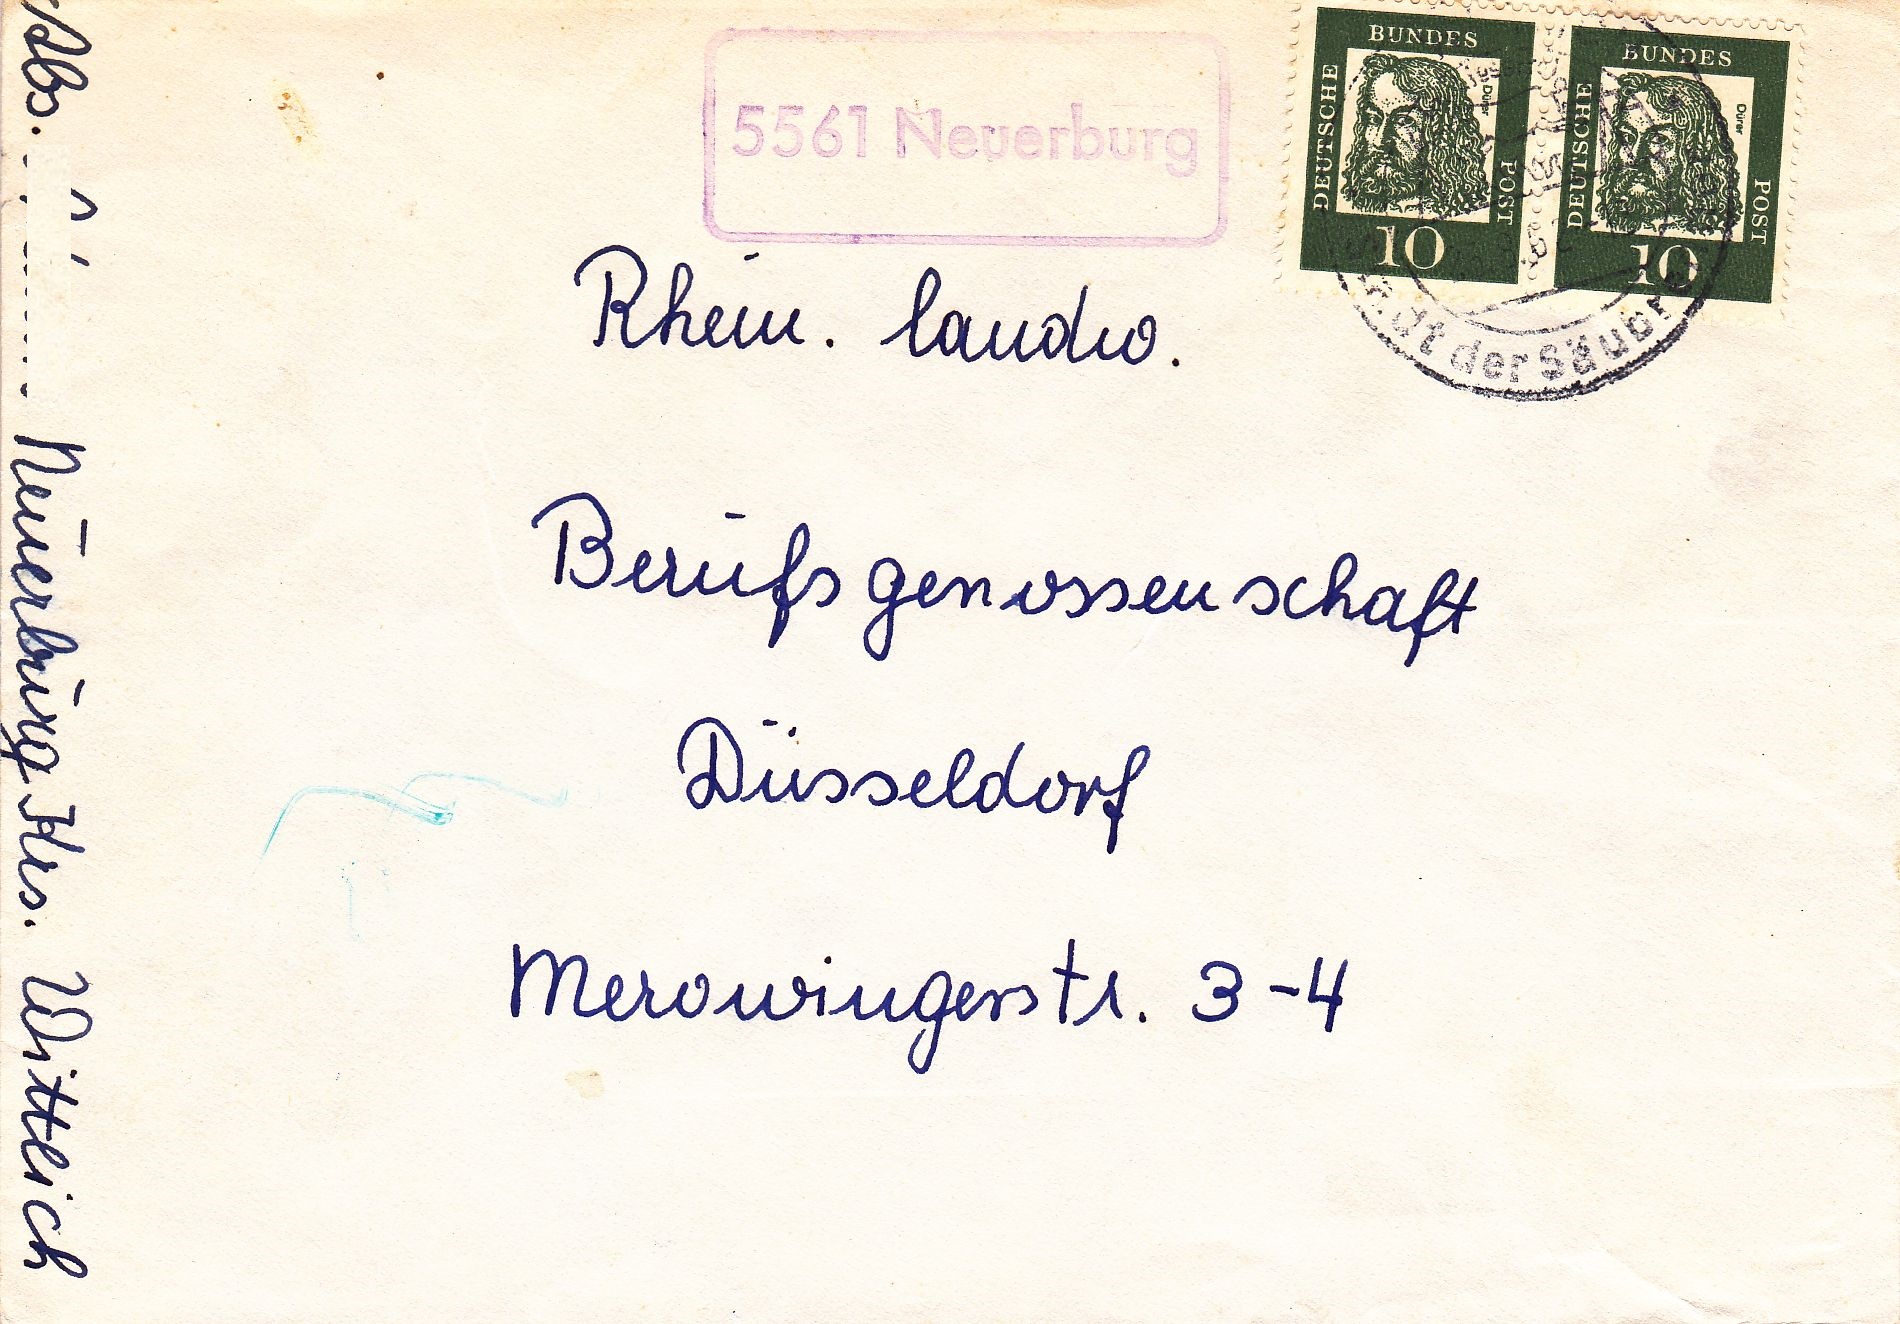 5561 Neuerburg
DEUTSCHE BUNDES POST
Dürer
10
DEUTSCHE BUNDES POST
Dürer
10
Stadt der Säubrenner
Rhein. landw.
Berufsgenossenschaft
Düsseldorf
Merowingerstr. 3-4
Abs.
Neuerburg Krs. Wittlich